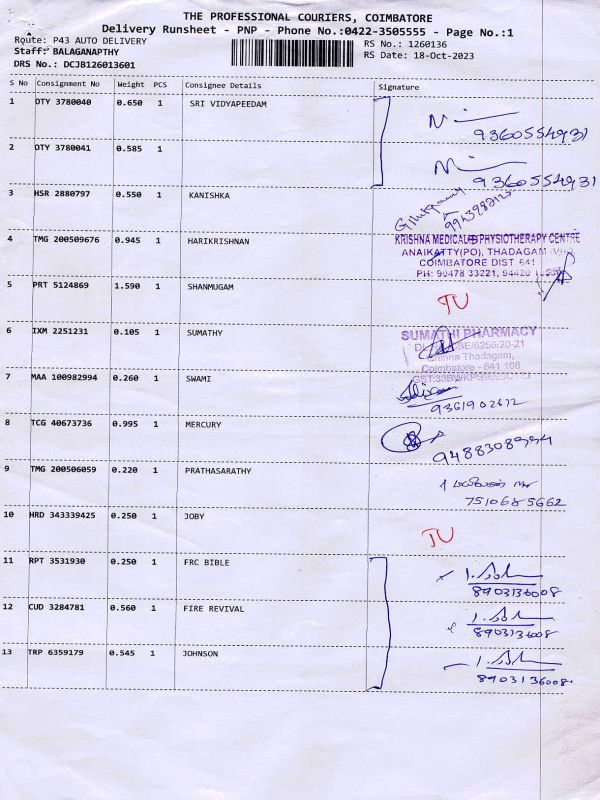 THE PROFESSIONAL COURIERS, COIMBATORE
Delivery Runsheet - PNP - Phone No.:0422-3505555 - Page No.:1
Route: P43 AUTO DELIVERY
RS No.: 1260136
Staff: BALAGANAPTHY
RS Date: 18-Oct-2023
DRS No.: DCJB126013601
S No Consignment No Weight PCS Consignee Details Signature
1 OTY 3780040 0.650 1 SRI VIDYAPEEDAM
9360554931
2 OTY 3780041 0.585 1
9360554931
3 HSR 2880797 0.550 1 KANISHKA
4 TMG 200509676 0.945 1 HARIKRISHNAN
KRISHNA MEDICAL & PHYSIOTHERAPY CENTRE
ANAIKATTY(PO), THADAGAM
COIMBATORE DIST 641
PH: 90478 33221, 94420
5 PRT 5124869 1.590 1 SHANMUGAM
TU
6 IXM 2251231 0.105 1 SUMATHY
SUMATHI PHARMACY
Thadagam,
Coimbatore - 641 108
7 MAA 100982994 0.260 1 SWAMI
9361902672
8 TCG 40673736 0.995 1 MERCURY
9 TMG 200506059 0.220 1 PRATHASARATHY
7510685662
10 HRD 343339425 0.250 1 JOBY
TU
11 RPT 3531930 0.250 1 FRC BIBLE
8903136008
12 CUD 3284781 0.560 1 FIRE REVIVAL
8903136008
13 TRP 6359179 0.545 1 JOHNSON
8903136008